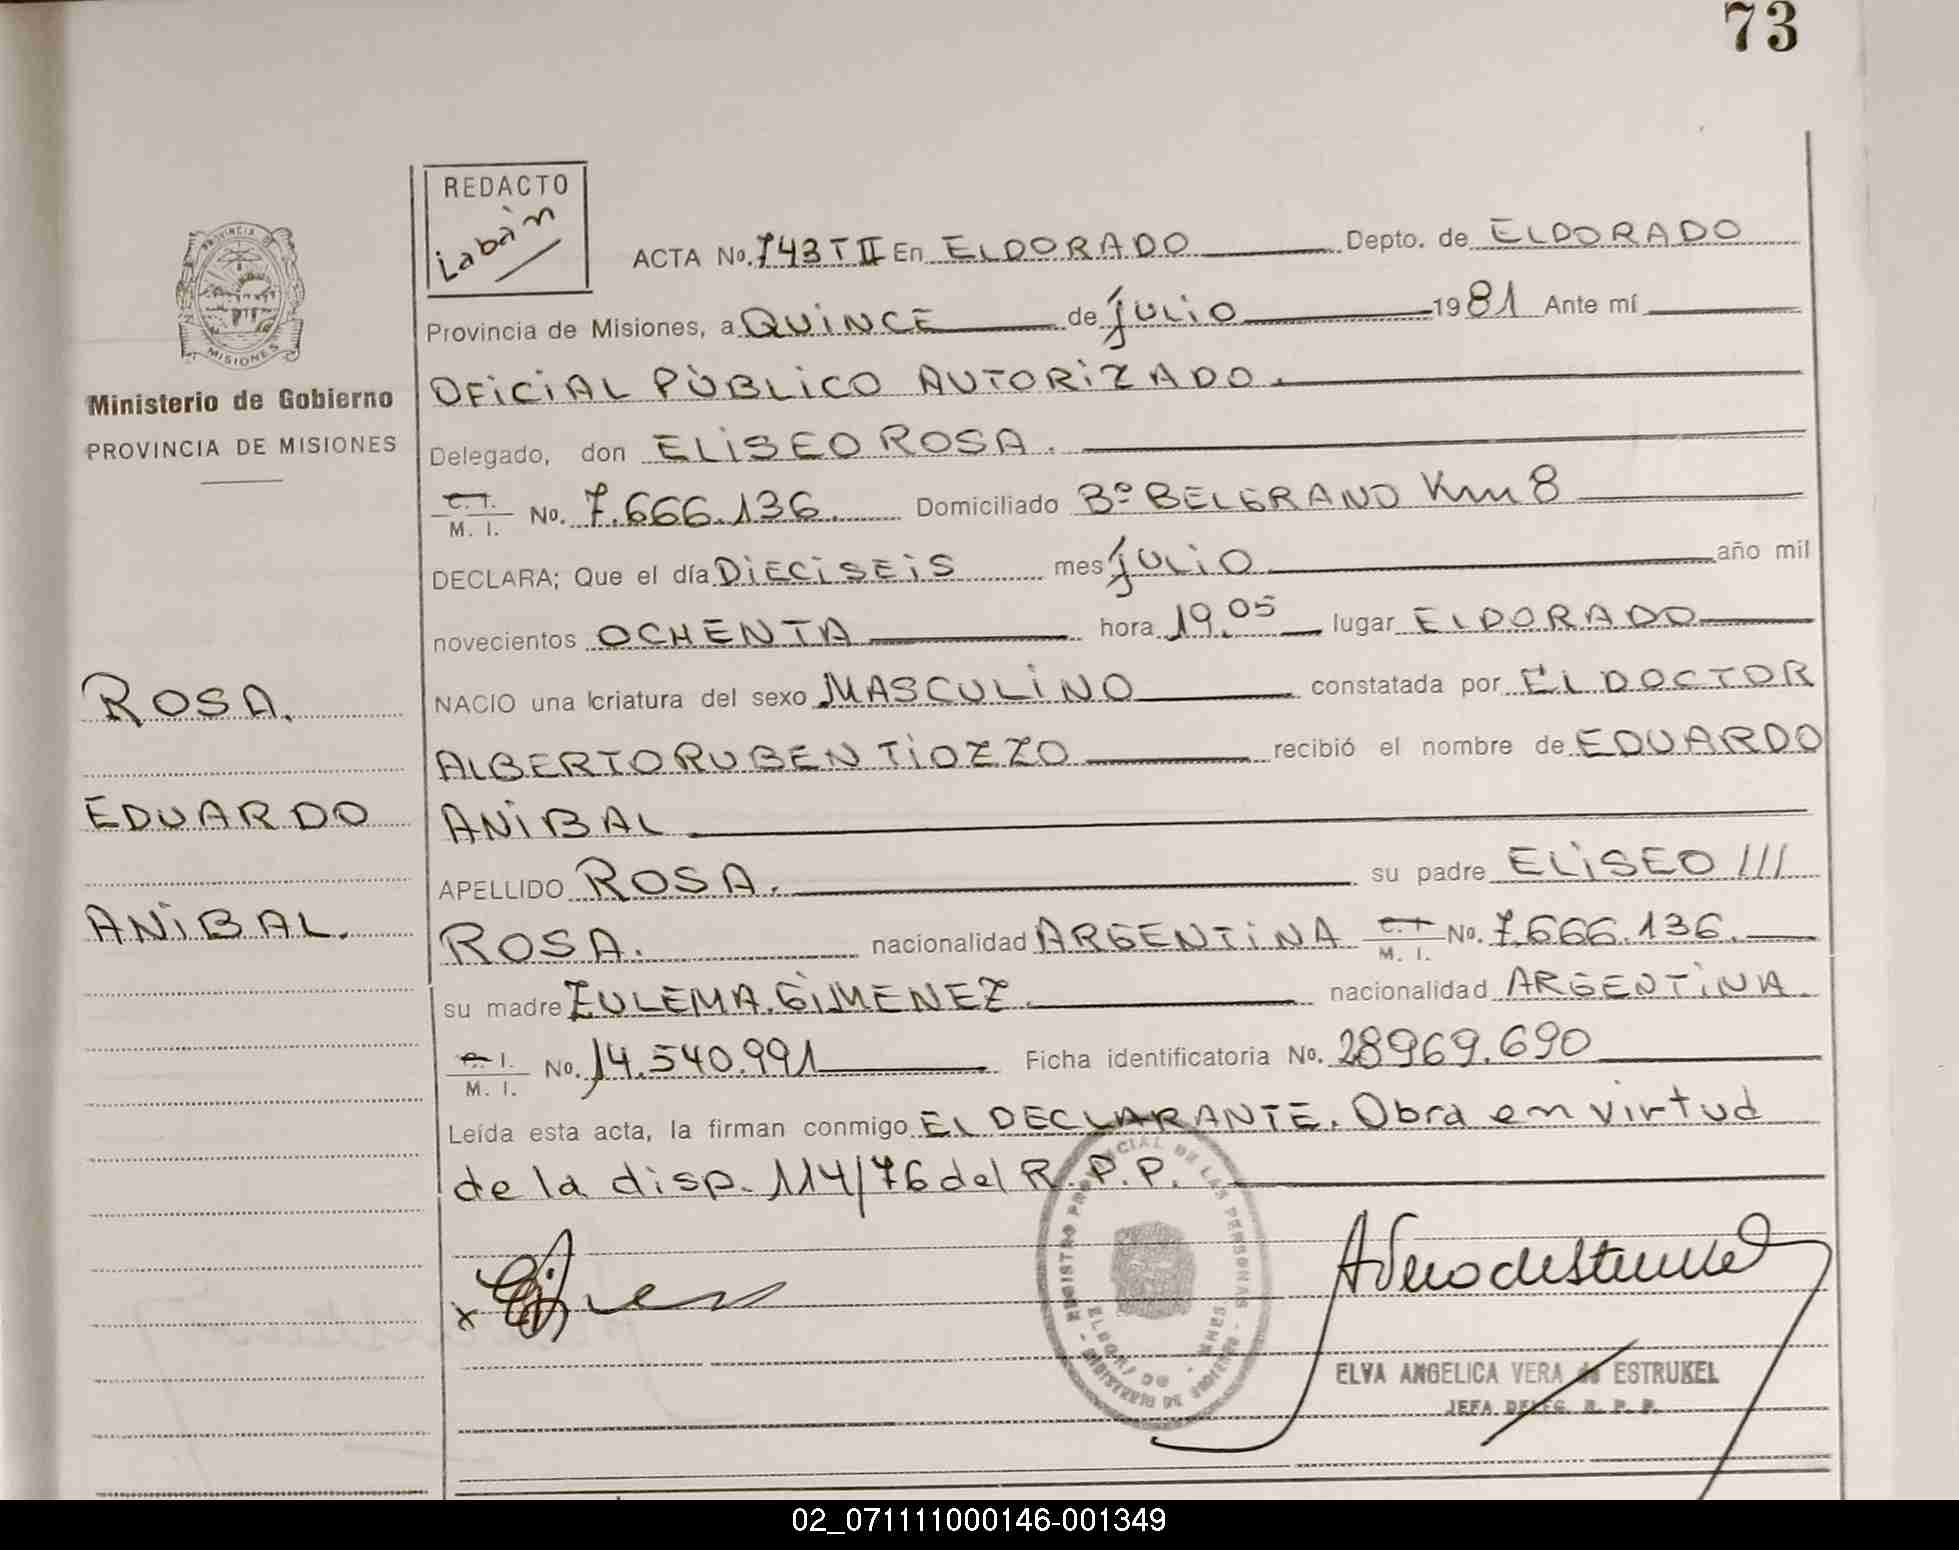 73
REDACTO
Labán
PROVINCIA DE
MISIONES
Ministerio de Gobierno
PROVINCIA DE MISIONES
ROSA.
EDUARDO
ANIBAL.
ACTA No. 743 T II En ELDORADO Depto. de ELDORADO
Provincia de Misiones, a QUINCE de julio 1981 Ante mí
OFICIAL PÚBLICO AUTORIZADO.
Delegado, don ELISEO ROSA.
C. I. M. I. No. 7.666.136. Domiciliado Bº BELGRANO Km 8
DECLARA; Que el día DIECISEIS mes julio año mil
novecientos OCHENTA hora 19,05 lugar ELDORADO
NACIO una criatura del sexo MASCULINO constatada por EL DOCTOR
ALBERTO RUBEN TIOZZO recibió el nombre de EDUARDO
ANIBAL
APELLIDO ROSA. su padre ELISEO ///
ROSA. nacionalidad ARGENTINA C. I. M. I. No. 7.666.136.
su madre ZULEMA GIMENEZ nacionalidad ARGENTINA.
C. I. M. I. No. 14.540.991 Ficha identificatoria No. 28969.690
Leída esta acta, la firman conmigo EL DECLARANTE. Obra en virtud
de la disp. 114/76 del R.P.P.
REGISTRO PROVINCIAL DE LAS PERSONAS
ELDORADO
MISIONES
x
ELVA ANGELICA VERA de ESTRUKEL
JEFA DELEG. R. P. P.
02_071111000146-001349